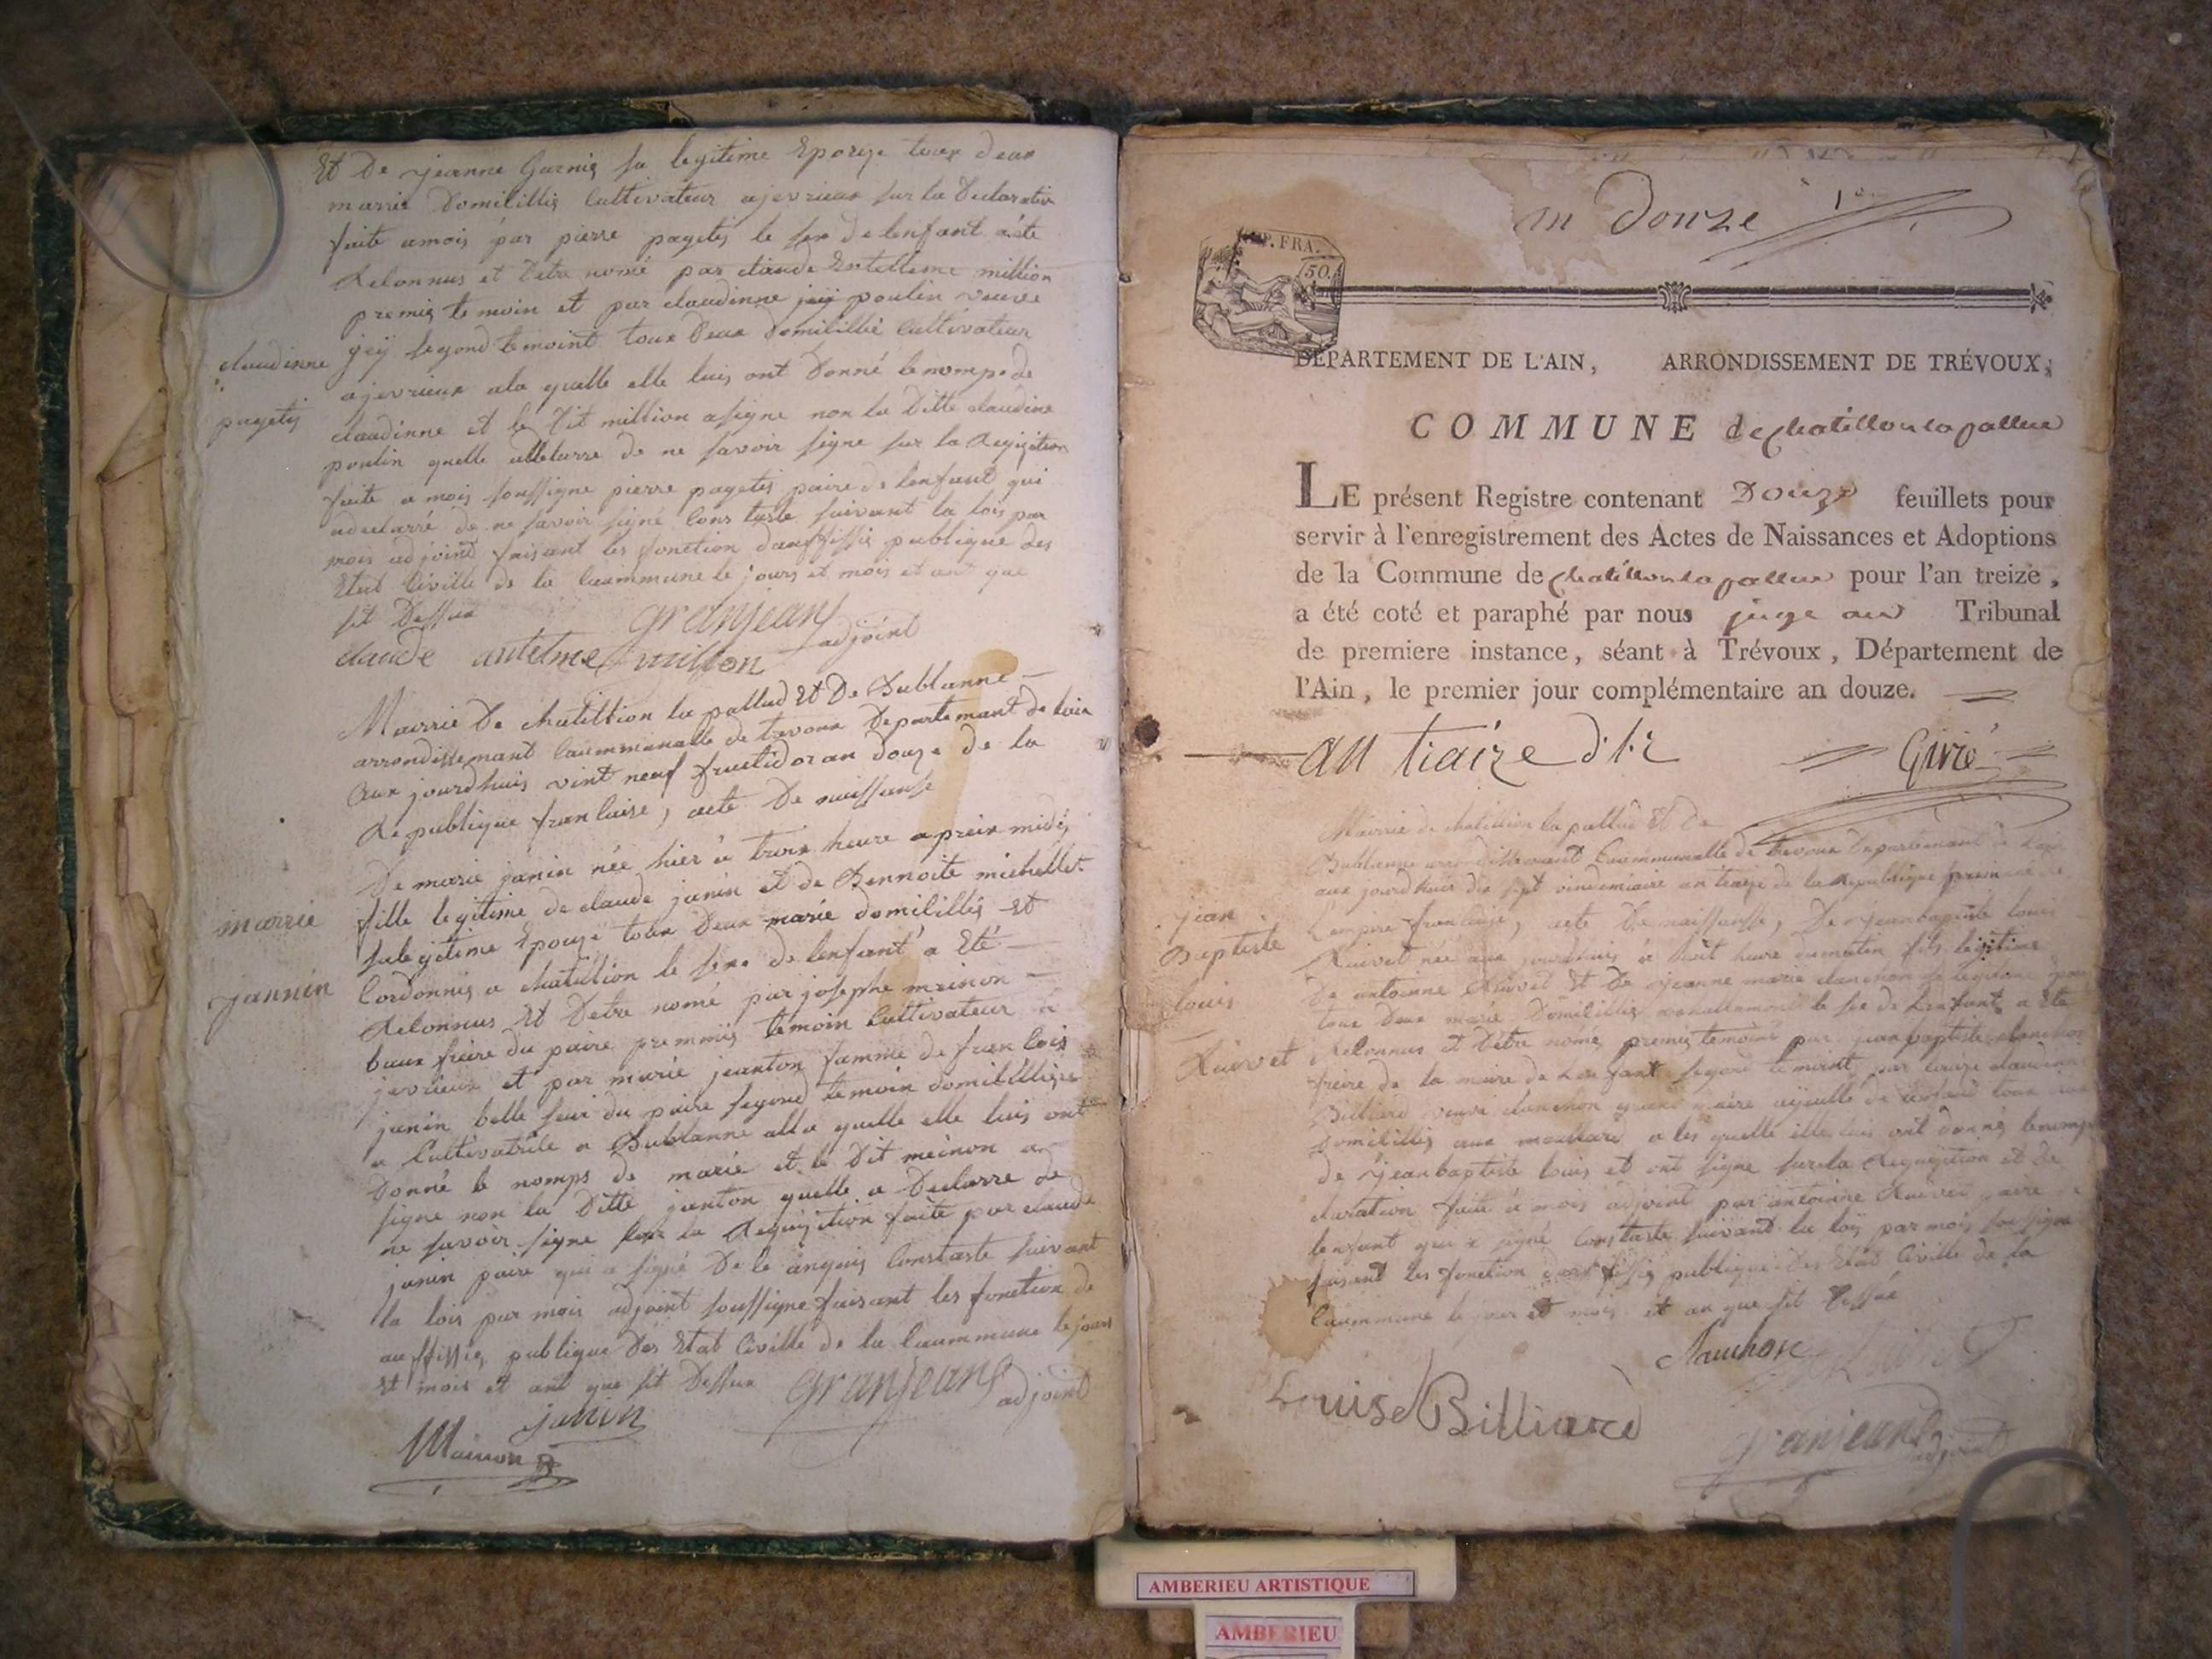 Et De jeanne Garnis sa legitime Epouze toux deux
marrié Domicilliés Cultivateur ajevrieux sur la Declaration
faite amois par pierre pagetis le sex de lenfant a été
Relonnus et Detre nomé par claude million
premis temoin et par claudinne jeÿ poulin veuve
jeÿ segond temoint toux Deux Domicillié Cultivateur
claudinne
ajevrieux ala quelle elle luis ont Donné le nomps de
pagetis
claudinne et le Dit million asigne non la Ditte claudine
poulin quelle de ne savoir signe sur la Requisition
faite a mois soussigne pierre pagetis paire de lenfant qui
adeclarré de ne savoir signé Constaste suivant la lois par
mois adjoind faisant les fonction dauffissis publique des
Etat Civille de la Caummune le jours et mois et ant que
sit Dessux
granjean
adjoint
claude antelme million
Mairrie De chatillion la pallud Et De Bublanne
arrondissemant Caummunalle de trevoux Departemant de lain
Aux jourdhuis vint neuf fructidor an douze de la
Republique franlaise, acte De naissansse
De marie janin née hier à troix heure apreix midÿ
fille legitime de claude janin et de Bennoite michellet
marrie
salegitime Epouze toux Deux marié domicilliés et
jannin
Cordonnis a chatillion le sexe de lenfant a Eté
Relonnus Et Detre nomé par josephe mainon
baux freire du paire premmis temoin Cultivateur à
jevrieux et par marie jeanton famme de franlois
janin belle seur du paire segond temoin domicilliée
a Cultivatrile a Bublanne alla quelle elle luis ont
Donné le nomps de marie et le Dit meinon a
signe non la Ditte janton quelle a Declarre de
ne savoir signe sur la Requisition faite par claude
janin paire qui a signé De le Constaste suivant
la lois par mois adjoint soussigne faisant les fonction de
auffissis publique Des Etat Civille de la Caummune le jours
Et mois et ant que sit Dessux granjean
adjoint
janin
Mainon
an Douze 1er
IMP. FRA.
50.
DÉPARTEMENT DE L'AIN, ARRONDISSEMENT DE TRÉVOUX,
COMMUNE de chatillon la pallue
LE présent Registre contenant Douze feuillets pour
servir à l'enregistrement des Actes de Naissances et Adoptions
de la Commune de chatillon la pallue pour l'an treize,
a été coté et paraphé par nous juge au Tribunal
de premiere instance, séant à Trévoux, Département de
l'Ain, le premier jour complémentaire an douze.
an traize
Givré
Mairrie de chatillion la pallud Et De
Bublanne arrondissemant Caummunalle de trevoux Departemant de lain
aux jourdhuis dix sept vindemiaire an traize de la Republique
jean
Lempire franlaise, acte De naissansse, De jeanbaptiste louis
Baptiste
Ruivet née aux jourdhuis à huit heure dumatin fils legitime
louis
De antoinne Ruivet Et De jeanne marie clanchon sa legitime
toux Deux marié Domicilliés achallamont le sex de Lenfant a Eté
Ruivet
Relonnus et Detre nomé premis temoint par jeanbaptiste clanchon
freire de la maire de Lenfant segond temoint par louise claudine
Billiard veuve clanchon grand maire ayeulle de lenfant toux
Domicilliés aux a les quelle elle luis ont donnés lenomps
de jeanbaptiste louis et ont signe surla Requisition et De
claration faite à mois adjoint par antoinne Ruivet paire
lenfant qui a signé Constaste suivant la loÿ par mois sousigne
faisant les fonction dauffissis publique Des Etat Civille de la
Caummune le jour et mois et an que sit Dessux
Ruivet
Louise Billiard
granjean
adjoint
AMBERIEU ARTISTIQUE
AMBERIEU